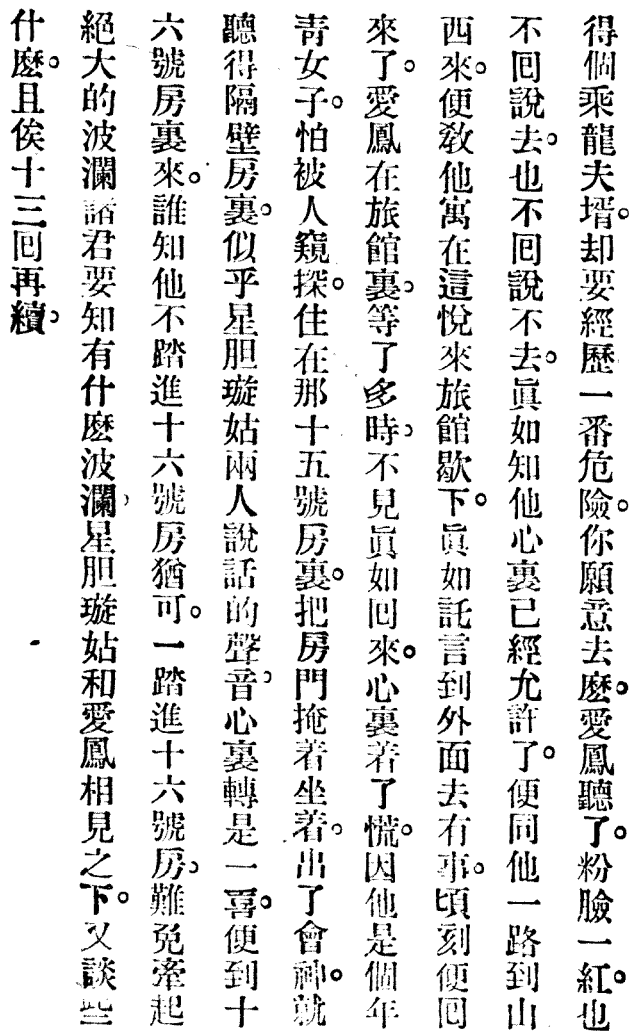 得個乘龍夫壻。却要經歷一番危險。你願意去麽。愛鳳聽了。粉臉一紅。也
不回說去。也不回說不去。眞如知他心裏已經允許了。便同他一路到山
西來。便敎他寓在這悅來旅館歇下。眞如託言到外面去有事。頃刻便回
來了。愛鳳在旅館裏。等了多時。不見眞如回來。心裏着了慌。因他是個年
靑女子。怕被人窺探。住在那十五號房裏。把房門掩着坐着。出了會神。就
聽得隔壁房裏。似乎星胆璇姑兩人說話的聲音。心裏轉是一喜。便到十
六號房裏來。誰知他不踏進十六號房猶可。一踏進十六號房。難免牽起
絕大的波瀾諸君要知有什麽波瀾、星胆璇姑和愛鳳相見之下。又談些
什麽。且俟十三回再續。